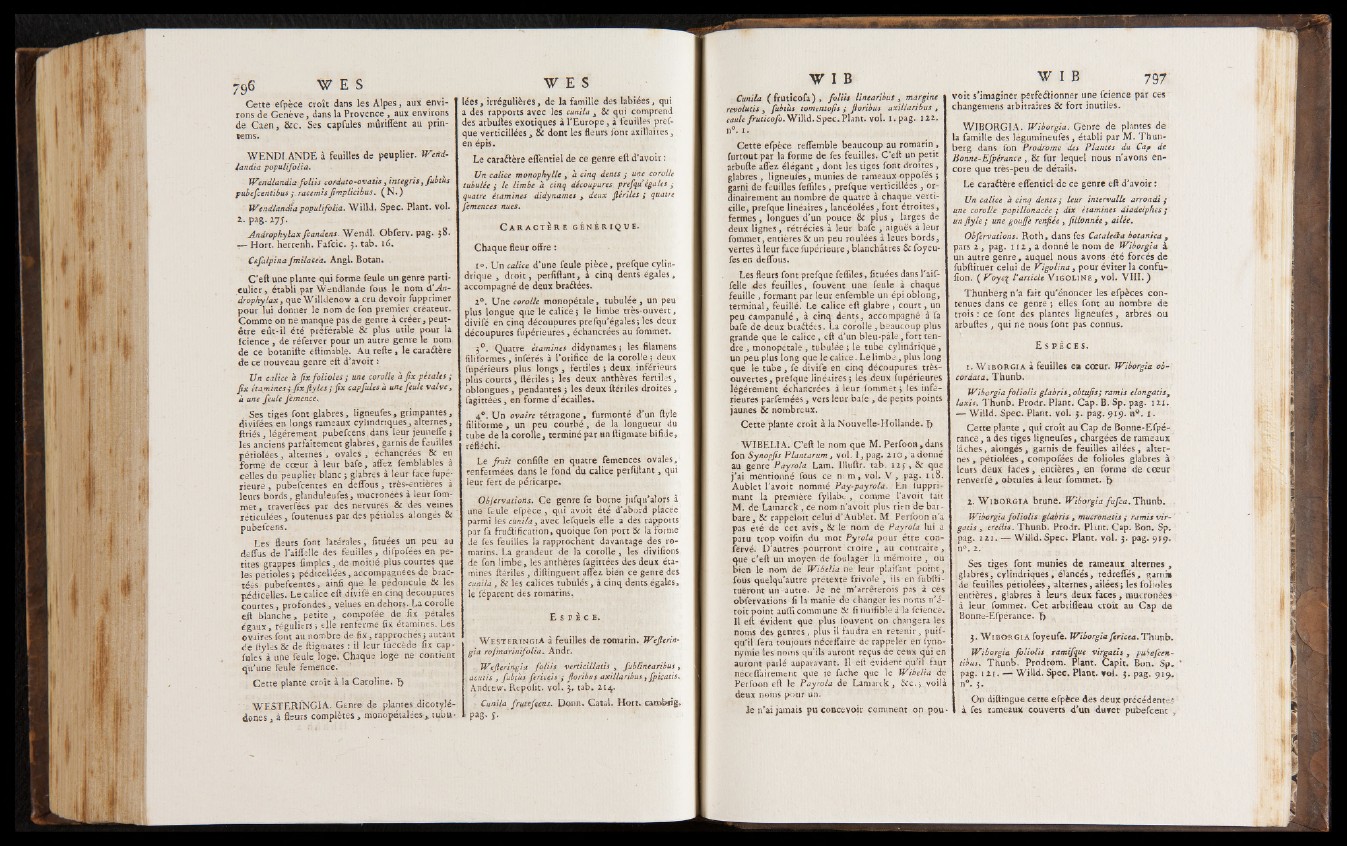 796 WES
Cette eſpèce croît dans les Alpes, aux envi-
rons de Genève, dans la Provence, aux environs
de Caen, &c. Ses capſules mûriſſent au prin-
tems.
WENDLANDE à feuilles de peuplier. Wend-
landia populifolia.
Wendlandia foliis cordato-ovatis, integris, ſubtùs
pubeſcentibus; racemis ſimplicibus. (N.)
Wendlandia populifolia. Willd. Spec. Plant. vol.
2. pag. 275.
Androphylax ſcandens. Wendl. Obſerv. pag. 38.
— Hort. herrenh. Faſcic. 3. tab. 16.
Cæſalpina ſmilacea. Angl. Botan.
C'eſt une plante qui forme ſeule un genre parti-
culier, établi par Wendlande ſous le nom d'An-
drophylax, que Willdenow a cru devoir ſupprimer
pour lui donner le nom de ſon premier créateur.
Comme on ne manque pas de genre à créer, peut-
être eût-il été préférable & plus utile pour la
ſcience, de réſerver pour un autre genre le nom
de ce botaniſte eſtimable. Au reſte, le caractère
de ce nouveau genre eſt d'avoir:
Un calice à ſix folioles; une corolle à ſix pétales;
ſix étamines; ſix ſtyles; ſix capſules à une ſeule valve,
à une ſeule ſemence.
Ses tiges ſont glabres, ligneuſes, grimpantes,
diviſées en longs rameaux cylindriques, alternes,
ſtriés, légèrement pubeſcens dans leur jeuneſſe;
les anciens parfaitement glabres, garnis de feuilles
pétiolées, alternes, ovales, échancrées & en
forme de cœur à leur baſe, aſſez ſemblables à
celles du peuplier blanc; glabres à leur face ſupé-
rieure, pubeſcentes en deſſous, très-entières à
leurs bords, glanduleuſes, mucronées à leur ſom-
met, traverſées par des nervures & des veines
réticulées, ſoutenues par des pétioles alongés &
pubeſcens.
Les fleurs ſont latérales, ſituées un peu au
deſſus de l'aiſſelle des feuilles, diſpoſées en pe-
tites grappes ſimples, de moitié plus courtes que
les pétioles; pédicellées, accompagnées de brac-
tées pubeſcentes, ainſi que le pédoncule & les
pédicelles. Le calice eſt diviſé en cinq découpures
courtes, profondes, velues en dehors. La corolle
eſt blanche, petite, compoſée de ſix pétales
égaux, réguliers; elle renferme ſix étamines. Les
ovaires ſont au nombre de ſix, rapprochés; autant
de ſtyles & de ſtigmates: il leur ſuccède ſix cap-
ſules à une ſeule loge. Chaque loge ne contient
qu'une ſeule ſemence.
Cette plante croît à la Caroline. ♄
WESTERINGIA. Genre de plantes dicotylé-
dones, à fleurs complètes, monopétalées, tubu-
WES
lées, irrégulières, de la famille des labiées, qui
a des rapports avec les cunila, & qui comprend
des arbuſtes exotiques à l'Europe, à feuilles preſ-
que verticillées, & dont les fleurs ſont axillaires,
en épis.
Le caractère eſſentiel de ce genre eſt d'avoir:
Un calice monophylle, à cinq dents; une corolle
tubulée; le limbe à cinq découpures preſqu'égales;
quatre étamines didynames, deux ſtériles; quatre
ſemences nues.
CARACTÈRE GÉNÉRIQUE.
Chaque fleur offre:
1°. Un calice d'une ſeule pièce, preſque cylin-
drique, droit, perſiſtant, à cinq dents égales,
accompagné de deux bractées.
2°. Une corolle monopétale, tubulée, un peu
plus longue que le calice; le limbe très-ouvert,
diviſé en cinq découpures preſqu'égales; les deux
découpures ſupérieures, échancrées au ſommet.
3°. Quatre étamines didynames; les filamens
filiformes, inſérés à l'orifice de la corolle; deux
ſupérieurs plus longs, fertiles; deux inférieurs
plus courts, ſtériles; les deux anthères fertiles,
oblongues, pendantes; les deux ſtériles droites,
ſagittées, en forme d'écailles.
4°. Un ovaire tétragone, ſurmonté d'un ſtyle
filiforme, un peu courbé, de la longueur du
tube de la corolle, terminé par un ſtigmate bifide,
réfléchi.
Le fruit conſiſte en quatre ſemences ovales,
renfermées dans le fond du calice perſiſtant, qui
leur ſert de péricarpe.
Obſervations. Ce genre ſe borne juſqu'alors à
une ſeule eſpèce, qui avoit été d'abord placée
parmi les cunila, avec leſquels elle a des rapports
par ſa fructification, quoique ſon port & la forme
de ſes feuilles la rapprochent davantage des ro-
marins. La grandeur de la corolle, les diviſions
de ſon limbe, les anthères ſagittées des deux éta-
mines ſtériles, diſtinguent aſſez bien ce genre des
cunila, & les calices tubulés, à cinq dents égales,
le ſéparent des romarins.
ESPÈCE.
WESTERINGIA à feuilles de romarin. Weſterin-
gia roſmarinifolia. Andr.
Weſteringia foliis verticillatis, ſublinearibus,
acutis, ſubtùs ſericeis; floribus axillaribus, ſpicatis.
Andrew. Repoſit. vol. 3. tab. 214.
Cunila fruteſcens. Donn. Catal. Hort. cambrig.
pag. 5.
WIB
Cunila (fruticoſa), foliis linearibus, margine
revolutis, ſubtùs tomentoſis; floribus axillaribus,
caule fruticoſo. Willd. Spec. Plant. vol. 1. pag. 122.
n°. 1.
Cette eſpèce reſſemble beaucoup au romarin,
ſurtout par la forme de ſes feuilles. C'eſt un petit
arbuſte aſſez élégant, dont les tiges ſont droites,
glabres, ligneuſes, munies de rameaux oppoſés;
garni de feuilles ſeſſiles, preſque verticillées, or-
dinairement au nombre de quatre à chaque verti-
cille, preſque linéaires, lancéolées, fort étroites,
fermes, longues d'un pouce & plus, larges de
deux lignes, rétrécies à leur baſe, aiguës à leur
ſommet, entières & un peu roulées à leurs bords,
vertes à leur face ſupérieure, blanchâtres & ſoyeu-
ſes en deſſous.
Les fleurs ſont preſque ſeſſiles, ſituées dans l'aiſ-
ſelle des feuilles, ſouvent une ſeule à chaque
feuille, formant par leur enſemble un épi oblong,
terminal, feuillé. Le calice eſt glabre, court, un
peu campanulé, à cinq dents, accompagné à ſa
baſe de deux bractées. La corolle, beaucoup plus
grande que le calice, eſt d'un bleu-pâle, fort ten-
dre, monopétale, tubulée; le tube cylindrique,
un peu plus long que le calice. Le limbe, plus long
que le tube, ſe diviſe en cinq découpures très-
ouvertes, preſque linéaires; les deux ſupérieures
légèrement échancrées à leur ſommet; les infé-
rieures parſemées, vers leur baſe, de petits points
jaunes & nombreux.
Cette plante croît à la Nouvelle-Hollande. ♄
WIBELIA. C'eſt le nom que M. Perſoon, dans
ſon Synopſis Plantarum, vol. I, pag. 210, a donné
au genre Payrola Lam. Illuſtr. tab. 125, & que
j'ai mentionné ſous ce nom, vol. V, pag. 118.
Aublet l'avoit nommé Pay-payrola. En ſuppri-
mant la première ſyllabe, comme l'avoit fait
M. de Lamarck, ce nom n'avoit plus rien de bar-
bare, & rappeloit celui d'Aublet. M. Perſoon n'a
pas été de cet avis, & le nom de Payrola lui a
paru trop voiſin du mot Pyrola pour être con-
ſervé. D'autres pourront croire, au contraire,
que c'eſt un moyen de ſoulager la mémoire, ou
bien le nom de Wibelia ne leur plaiſant point,
ſous quelqu'autre prétexte frivole, ils en ſubſti-
tueront un autre. Je ne m'arrêterois pas à ces
obſervations ſi la manie de changer les noms n'é-
toit point auſſi commune & ſi nuiſible à la ſcience.
Il eſt évident que plus ſouvent on changera les
noms des genres, plus il faudra en retenir, puiſ-
qu'il ſera toujours néceſſaire de rappeler en ſyno-
nymie les noms qu'ils auront reçus de ceux qui en
auront parlé auparavant. Il eſt évident qu'il faut
néceſſairement que je ſache que le Wibelia de
Perſoon eſt le Payrola de Lamarck, &c.; voilà
deux noms pour un.
Je n'ai jamais pu concevoir comment on pou-
WIB 797
voit s'imaginer perfectionner une ſcience par ces
changemens arbitraires & fort inutiles.
WIBORGIA. Wiborgia. Genre de plantes de
la famille des légumineuſes, établi par M. Thun-
berg dans ſon Prodrome des Plantes du Cap de
Bonne-Eſpérance, & ſur lequel nous n'avons en-
core que très-peu de détails.
Le caractère eſſentiel de ce genre eſt d'avoir:
Un calice à cinq dents; leur intervalle arrondi;
une corolle papillonacée; dix étamines diadelphes;
un ſtyle; une gouſſe renflée, ſillonnée, ailée.
Obſervations. Roth, dans ſes Catalecta botanica,
pars 2, pag. 112, a donné le nom de Wiborgia à
un autre genre, auquel nous avons été forcés de
ſubſtituer celui de Vigolina, pour éviter la confu-
ſion. (Voyez l'article VIGOLINE, vol. VIII.)
Thunberg n'a fait qu'énoncer les eſpèces con-
tenues dans ce genre; elles ſont au nombre de
trois: ce ſont des plantes ligneuſes, arbres ou
arbuſtes, qui ne nous ſont pas connus.
ESPÈCES.
1. WIBORGIA à feuilles en cœur. Wiborgia ob-
cordata. Thunb.
Wiborgia foliolis glabris, obtuſis; ramis elongatis,
laxis. Thunb. Prodr. Plant. Cap. B. Sp. pag. 121.
— Willd. Spec. Plant. vol. 3. pag. 919. n°. 1.
Cette plante, qui croît au Cap de Bonne-Eſpé-
rance, a des tiges ligneuſes, chargées de rameaux
lâches, alongés, garnis de feuilles ailées, alter-
nes, pétiolées, compoſées de folioles glabres à
leurs deux faces, entières, en forme de cœur
renverſé, obtuſes à leur ſommet. ♄
2. WIBORGIA brune. Wiborgia fuſca. Thunb.
Wiborgia foliolis glabris, mucronatis; ramis vir-
gatis, erectis. Thunb. Prodr. Plant. Cap. Bon. Sp.
pag. 121. — Willd. Spec. Plant. vol. 3. pag. 919.
n°. 2.
Ses tiges ſont munies de rameaux alternes,
glabres, cylindriques, élancés, redreſſés, garnis
de feuilles pétiolées, alternes, ailées; les folioles
entières, glabres à leurs deux faces, mucronées
à leur ſommet. Cet arbriſſeau croît au Cap de
Bonne-Eſpérance. ♄
3. WIBORGIA ſoyeuſe. Wiborgia ſericea. Thunb.
Wiborgia foliolis ramiſque virgatis, pubeſcen-
tibus. Thunb. Prodrom. Plant. Capit. Bon. Sp.
pag. 121. — Willd. Spec. Plant. vol. 3. pag. 919.
n°. 3.
On diſtingue cette eſpèce des deux précédentes
à ſes rameaux couverts d'un duvet pubeſcent,